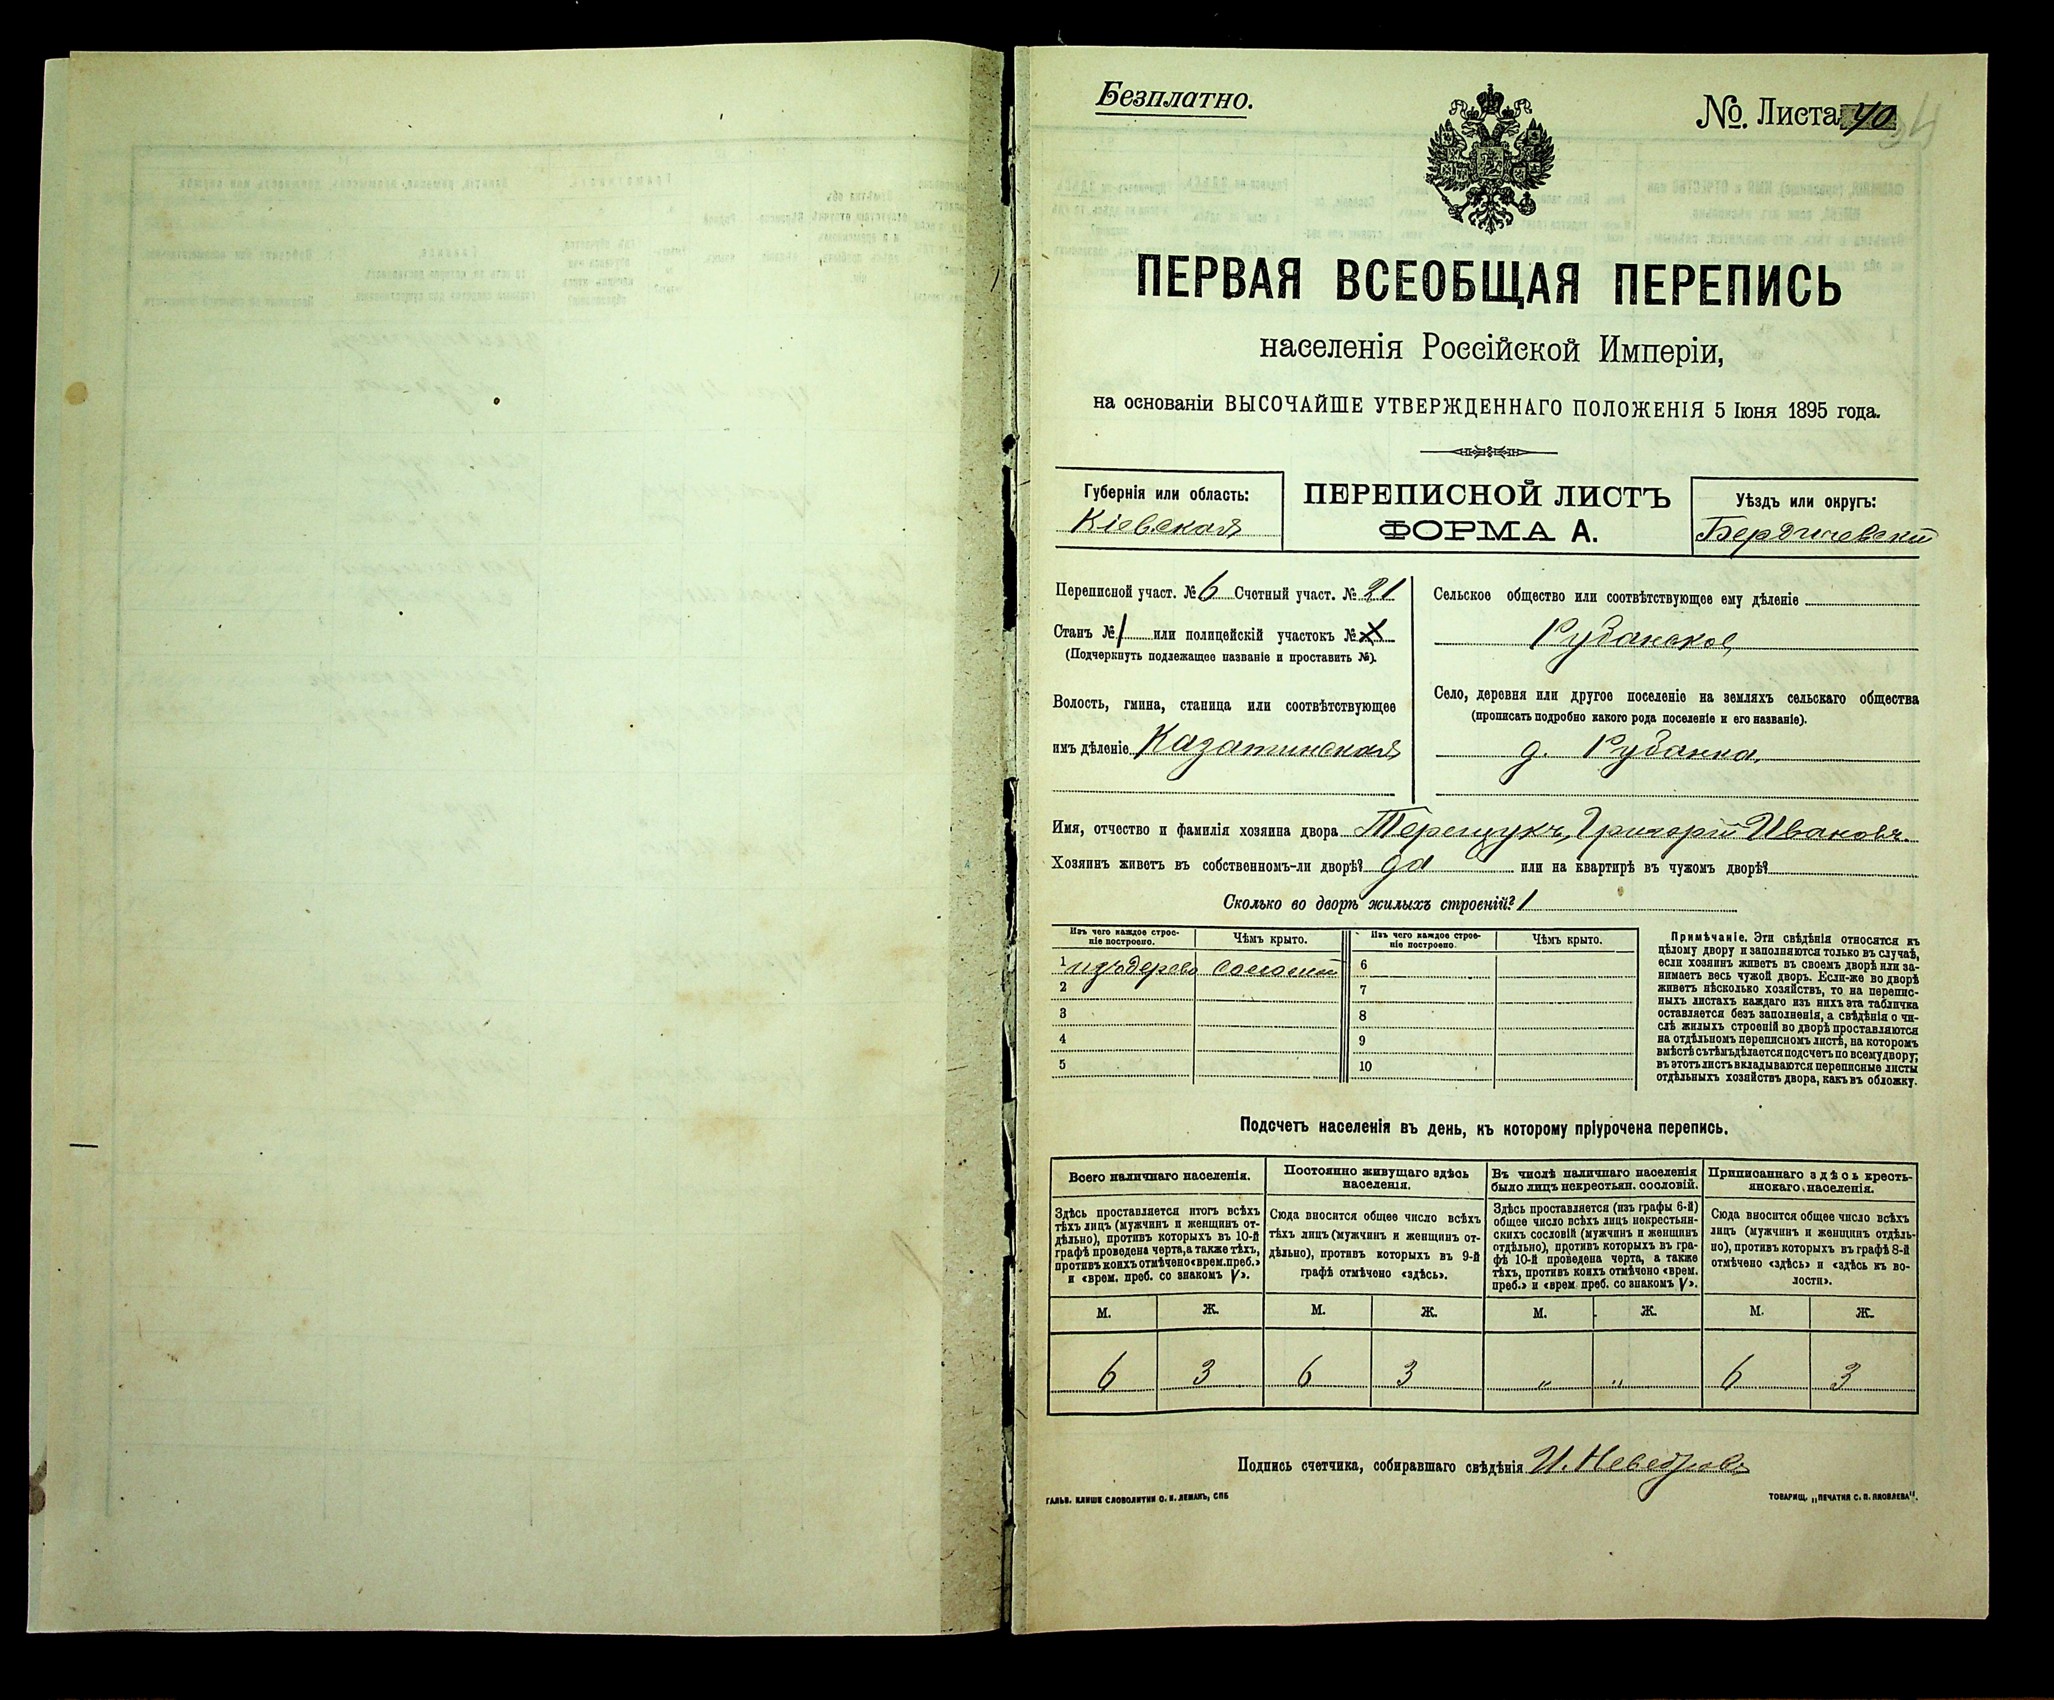 Безплатно.
№. Листа 40
ПЕРВАЯ ВСЕОБЩАЯ ПЕРЕПИСЬ
населенія Россійской Имперіи,
на основаніи ВЫСОЧАЙШЕ УТВЕРЖДЕННАГО ПОЛОЖЕНІЯ 5 Іюня 1895 года.
Губернія или область:
Кіевская
ПЕРЕПИСНОЙ ЛИСТЪ
ФОРМА А.
Уѣздъ или округъ:
Бердичевскій
Переписной участ. № 6 Счетный участ. № 21
Станъ № 1 или полицейскій участокъ № X
(Подчеркнуть подлежащее названіе и проставить №).
Волость, гмина, станица или соотвѣтствующее
имъ дѣленіе Казатинская
Сельское общество или соотвѣтствующее ему дѣленіе
Рубанское
Село, деревня или другое поселеніе на земляхъ сельскаго общества
(прописать подробно какого рода поселеніе и его названіе).
д. Рубанка
Имя, отчество и фамилія хозяина двора Терещукъ, Григорій Ивановъ
Хозяинъ живетъ въ собственномъ-ли дворѣ? да или на квартирѣ въ чужомъ дворѣ?
Сколько во дворѣ жилыхъ строеній? 1
Изъ чего каждое строе-
ніе построено.
Чѣмъ крыто.
Изъ чего каждое строе-
ніе построено.
Чѣмъ крыто.
1 изъ дерева соломой 6
2 7
3 8
4 9
5 10
Примѣчаніе. Эти свѣдѣнія относятся къ
цѣлому двору и заполняются только въ случаѣ,
если хозяинъ живетъ въ своемъ дворѣ или за-
нимаетъ весь чужой дворъ. Если-же во дворѣ
живетъ нѣсколько хозяйствъ, то на перепис-
ныхъ листахъ каждаго изъ нихъ эта табличка
оставляется безъ заполненія, а свѣдѣнія о чи-
слѣ жилыхъ строеній во дворѣ проставляются
на отдѣльномъ переписномъ листѣ, на которомъ
вмѣстѣ съ тѣмъ дѣлается подсчетъ по всему двору;
въ этотъ листъ вкладываются переписные листы
отдѣльныхъ хозяйствъ двора, какъ въ обложку.
Подсчетъ населенія въ день, къ которому пріурочена перепись.
Всего наличнаго населенія.
Здѣсь проставляется итогъ всѣхъ
тѣхъ лицъ (мужчинъ и женщинъ от-
дѣльно), противъ которыхъ въ 10-й
графѣ проведена черта, а также тѣхъ,
противъ коихъ отмѣчено «врем. преб.»
и «врем. преб. со знакомъ V».
Постоянно живущаго здѣсь
населенія.
Сюда вносится общее число всѣхъ
тѣхъ лицъ (мужчинъ и женщинъ от-
дѣльно), противъ которыхъ въ 9-й
графѣ отмѣчено «здѣсь».
Въ числѣ наличнаго населенія
было лицъ некрестьян. сословій.
Здѣсь проставляется (изъ графы 6-й)
общее число всѣхъ лицъ некрестьян-
скихъ сословій (мужчинъ и женщинъ
отдѣльно), противъ которыхъ въ гра-
фѣ 10-й проведена черта, а также
тѣхъ, противъ коихъ отмѣчено «врем.
преб.» и «врем преб. со знакомъ V».
Приписаннаго здѣсь кресть-
янскаго населенія.
Сюда вносится общее число всѣхъ
лицъ (мужчинъ и женщинъ отдѣль-
но), противъ которыхъ въ графѣ 8-й
отмѣчено «здѣсь» и «здѣсь къ во-
лости».
М. Ж. М. Ж. М. Ж. М. Ж.
6 3 6 3 " " 6 3
Подпись счетчика, собиравшаго свѣдѣнія И. Неведровъ
ГАЛЬВ. КЛИШЕ СЛОВОЛИТНИ О. И. ЛЕМАНЪ, СПБ
ТОВАРИЩ. „ПЕЧАТНЯ С. П. ЯКОВЛЕВА".